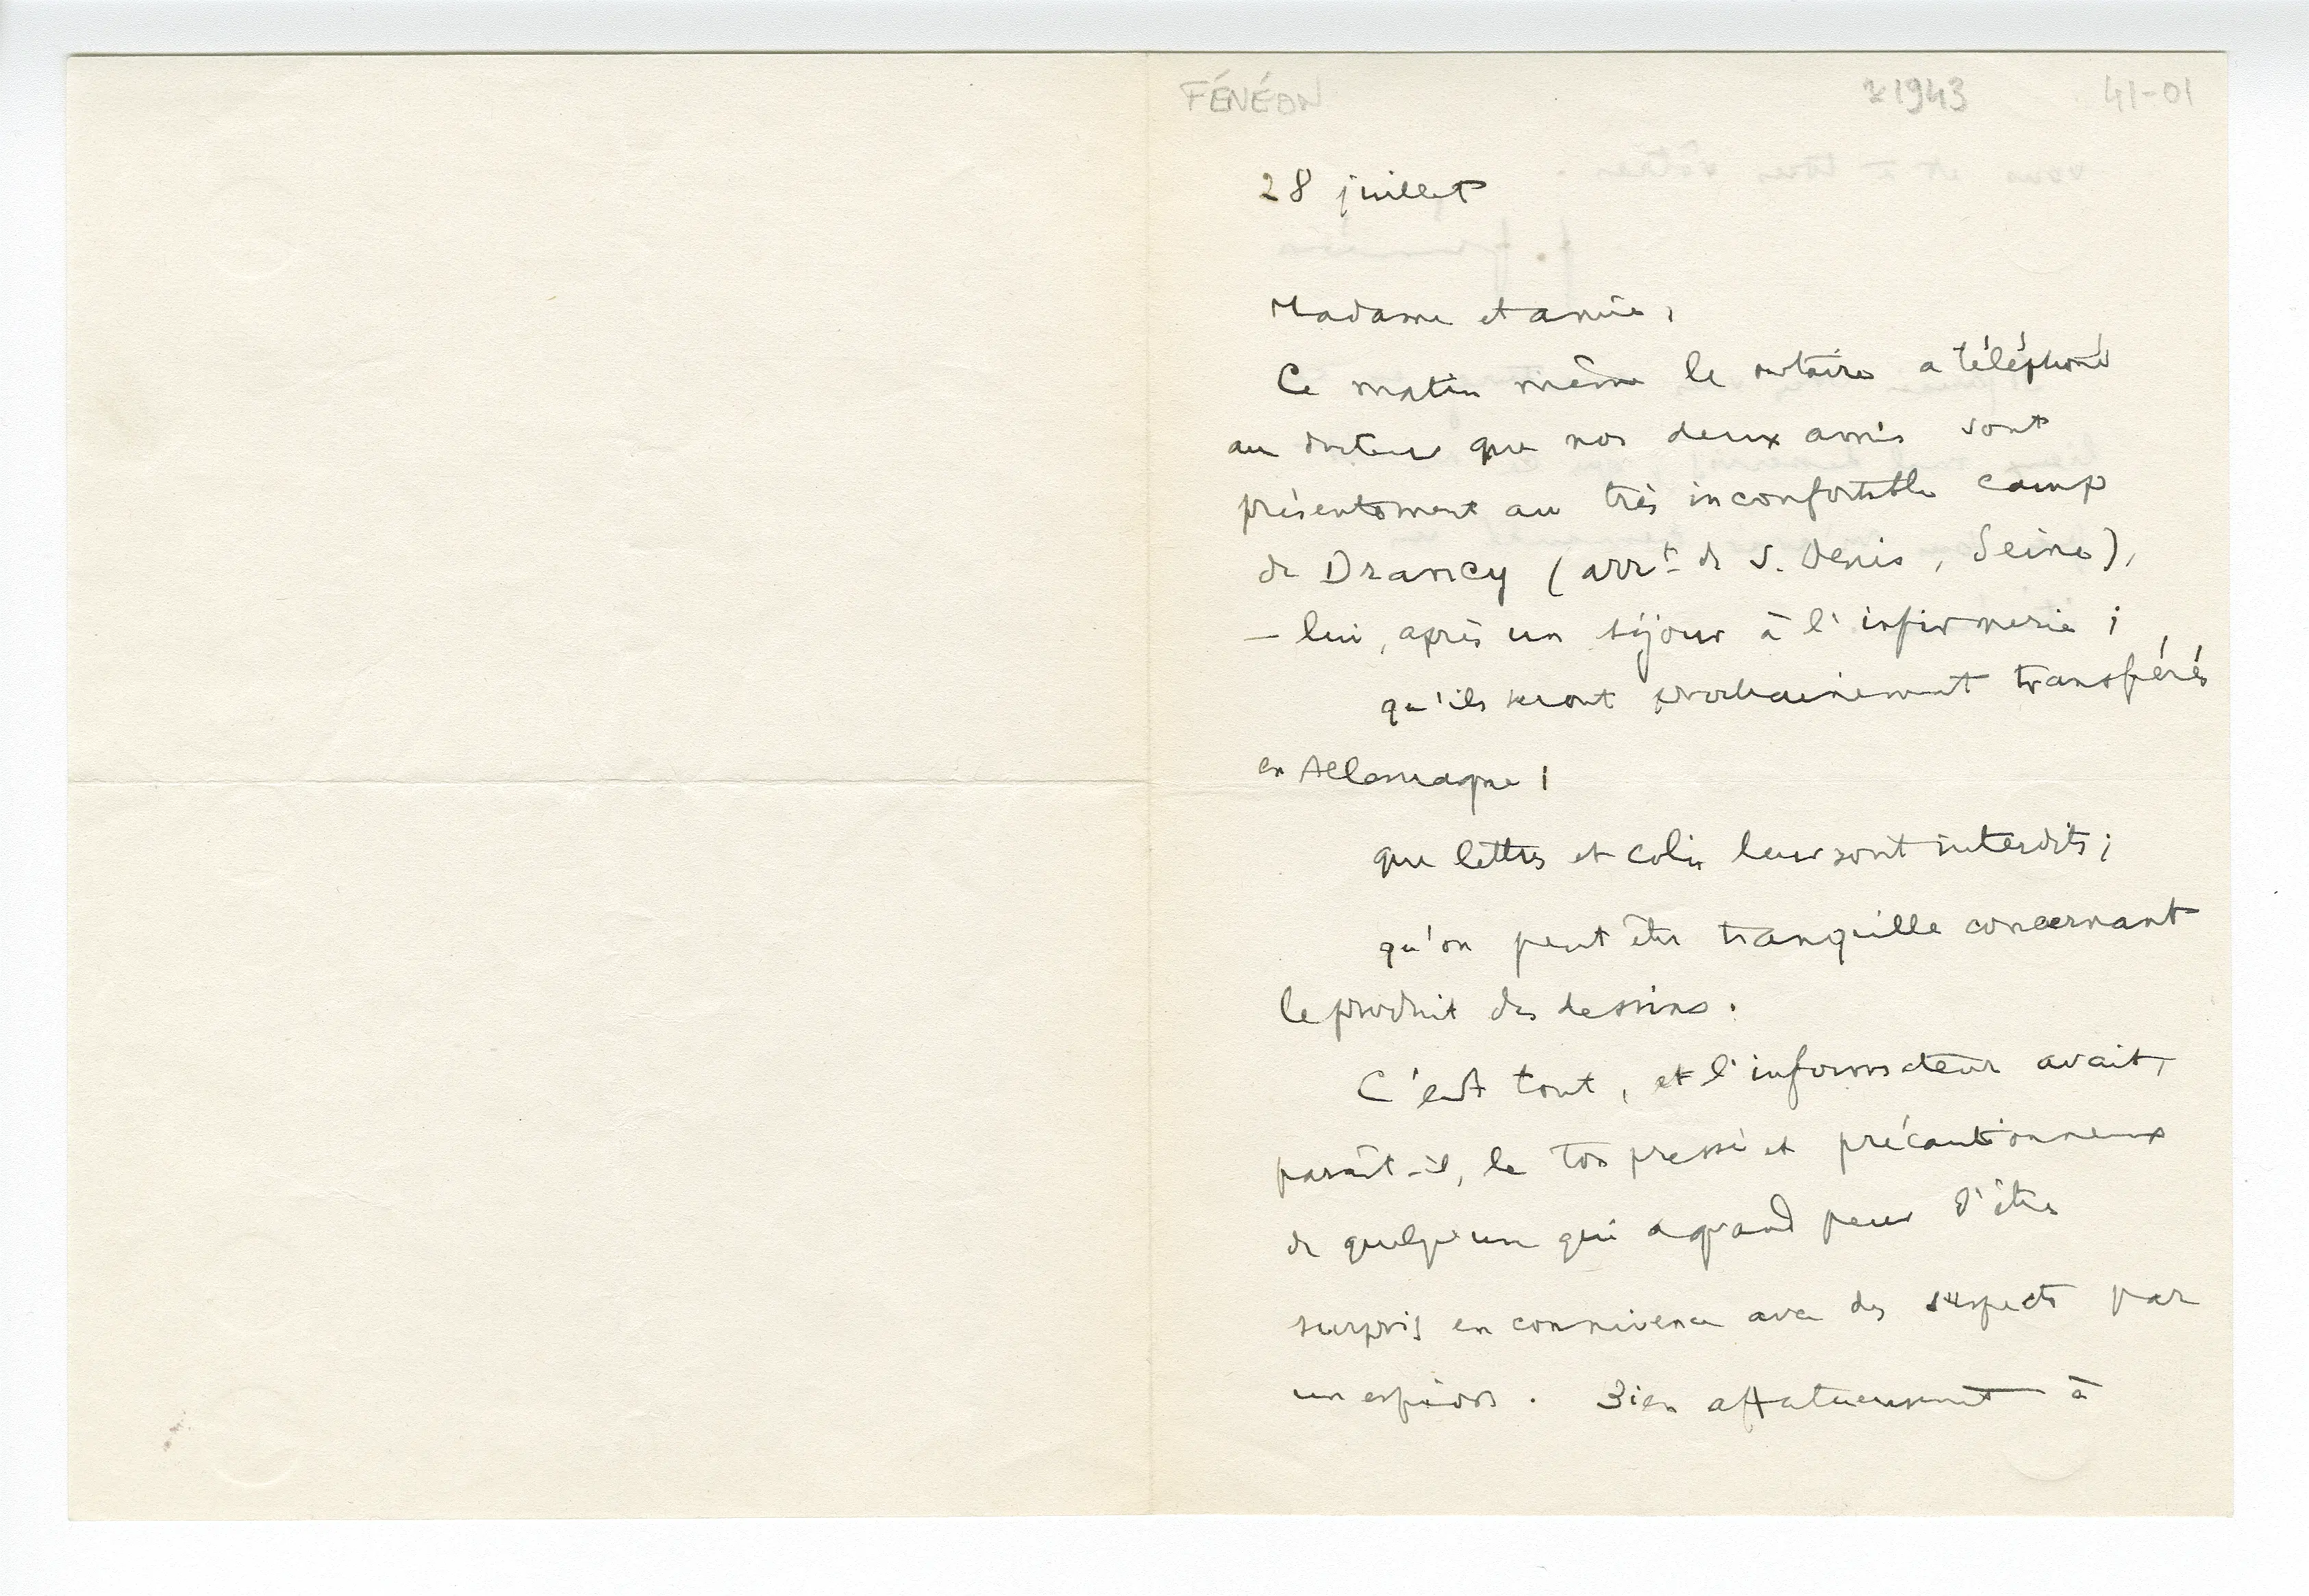 FÉNÉON 1943 41-01
28 juillet
Madame et amie,
Ce matin même le notaire a téléphoné
au docteur que nos deux amis sont
présentement au très inconfortable camp
de Drancy (arrt de S. Denis, Seine),
— lui, après un séjour à l'infirmerie ;
qu'ils seront prochainement transférés
en Allemagne ;
que lettres et colis leur sont interdits ;
qu'on peut être tranquille concernant
le produit des dessins.
C'est tout, et l'informateur avait,
paraît-il, le ton pressé et précautionneux
de quelqu'un qui a grand peur d'être
surpris en connivence avec des suspects par
un espion. Bien affectueusement à